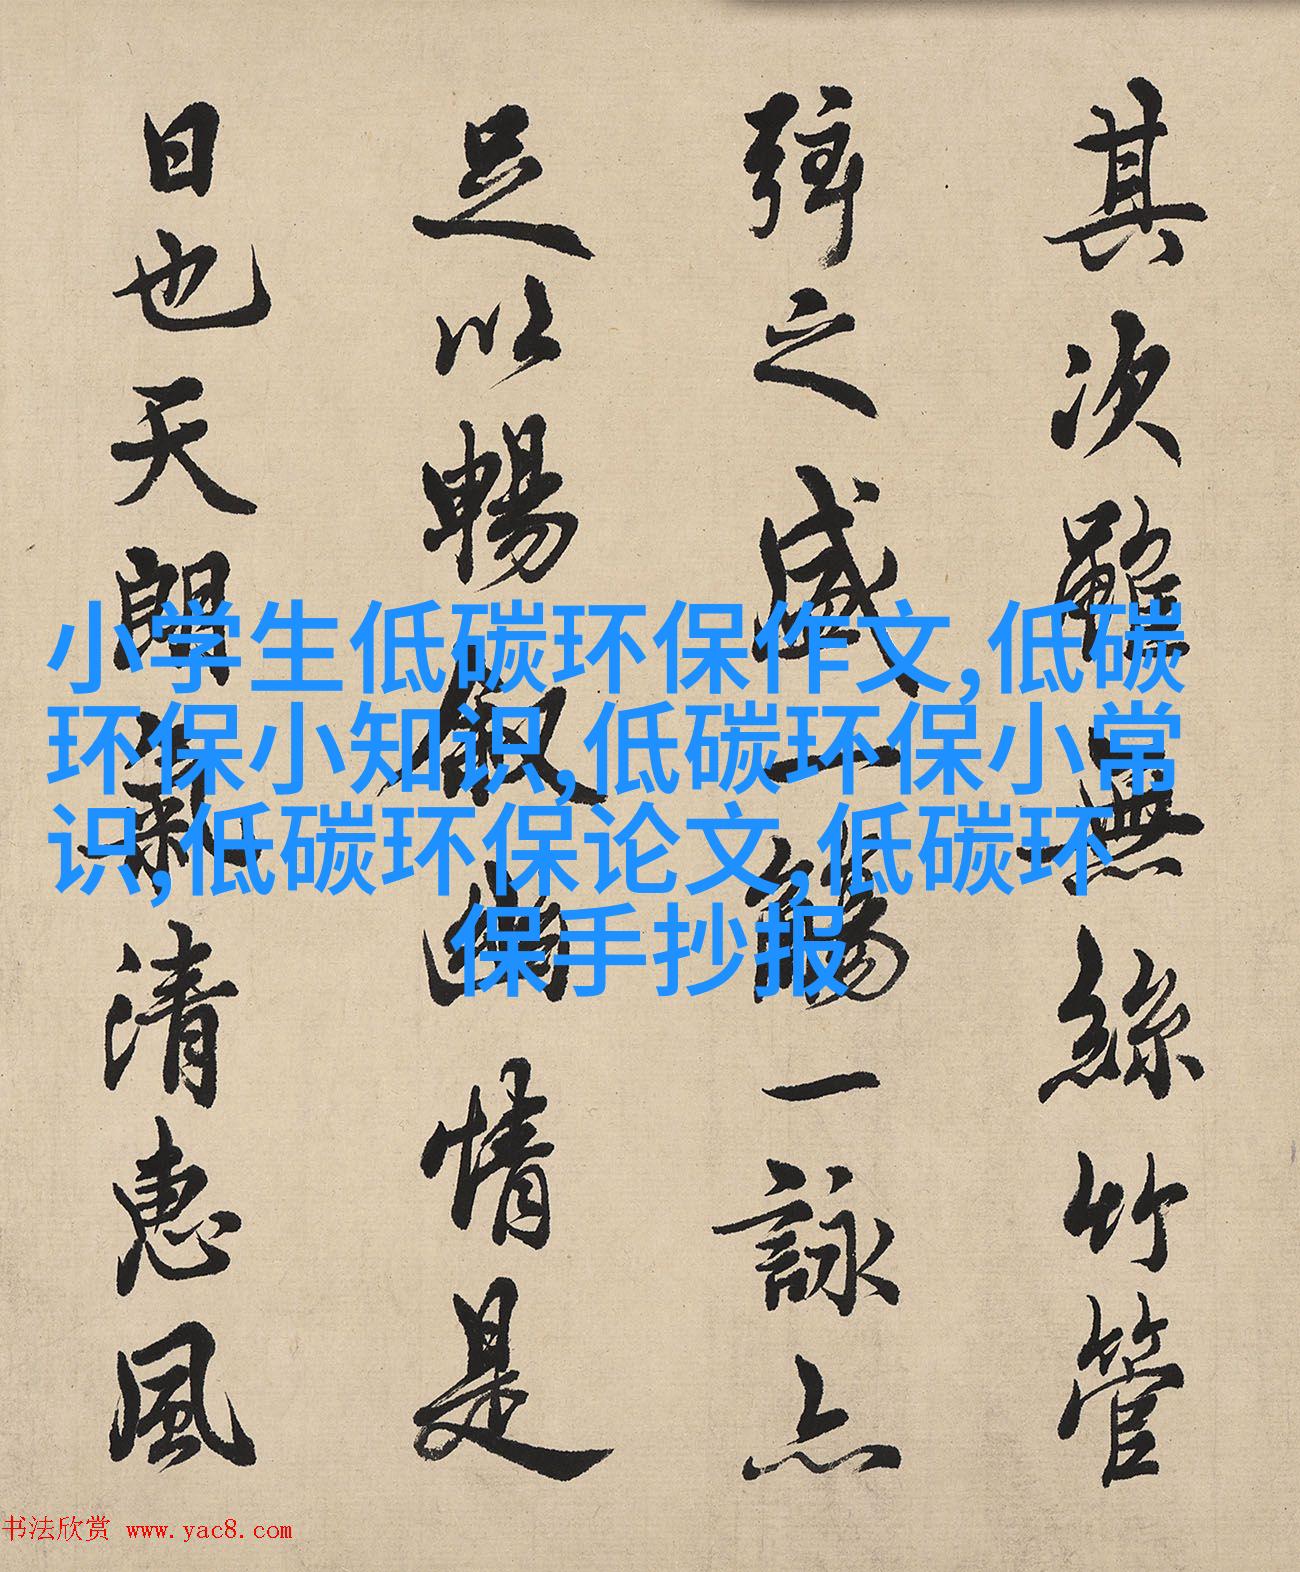 其次雖無絲竹管
弦之盛一觴一詠亦
足以暢叙幽情是
日也天朗氣清惠風
小学生低碳环保作文,低碳
环保小知识,低碳环保小常
识,低碳环保论文,低碳环
保手抄报
书法欣赏 www.yac8.com